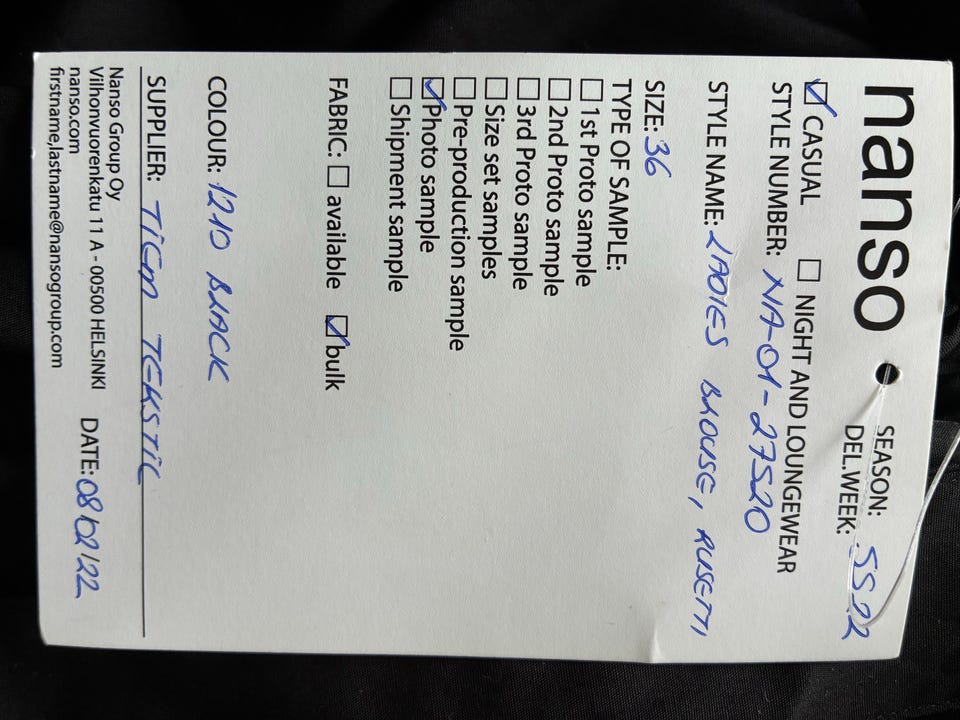 nanso
SEASON: SS22
DEL.WEEK:
☑ CASUAL ☐ NIGHT AND LOUNGEWEAR
STYLE NUMBER: NA-01-27520
STYLE NAME: LADIES BLOUSE, RUSETTI
SIZE: 36
TYPE OF SAMPLE:
☐ 1st Proto sample
☐ 2nd Proto sample
☐ 3rd Proto sample
☐ Size set samples
☐ Pre-production sample
☑ Photo sample
☐ Shipment sample
FABRIC: ☐ available ☑ bulk
COLOUR: 1210 BLACK
SUPPLIER: TIEM TEKSTIL
Nanso Group Oy
Vilhonvuorenkatu 11 A - 00500 HELSINKI DATE: 08/02/22
nanso.com
firstname,lastname@nansogroup.com